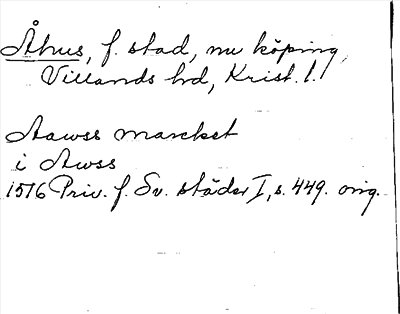 Åhus, f. stad, nu köping,
Villands hd, Krist. l.
Aawss marcket
i Awss
1516 Priv. f. Sv. städer I, s. 449. orig.